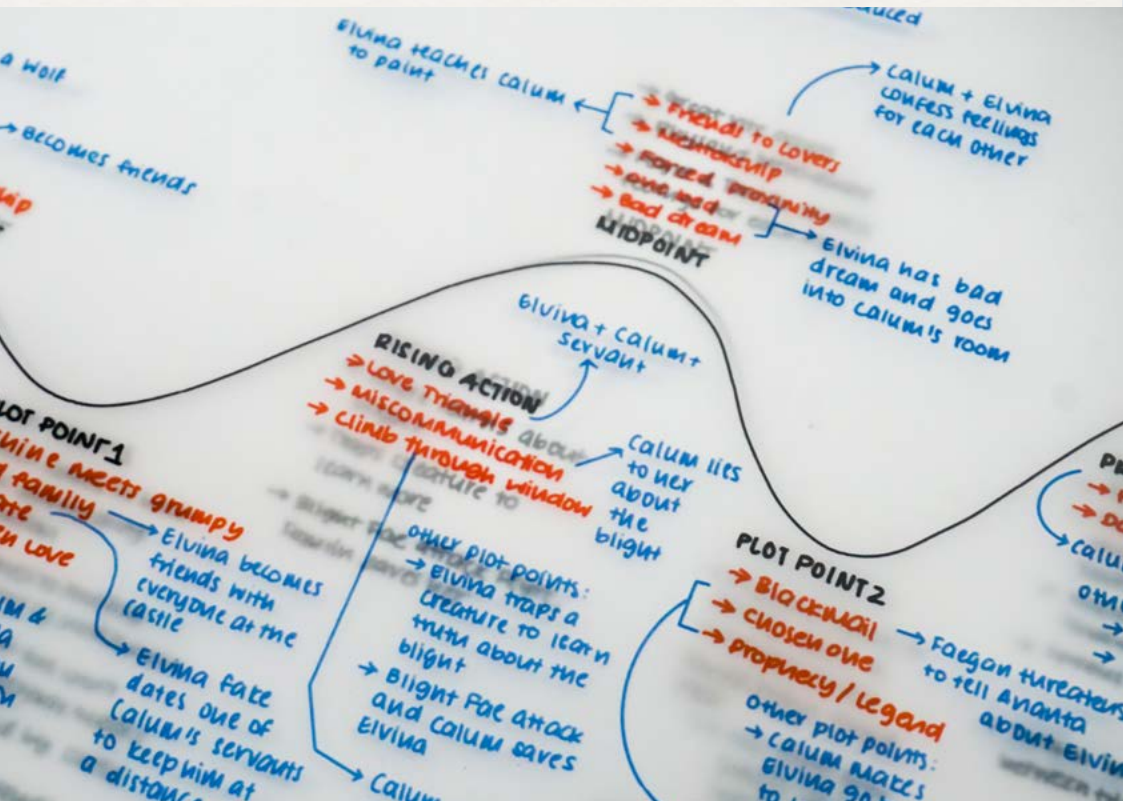 a wolf
→ Becomes friends
Elvina teaches Calum
to paint
→ Friends to Lovers
→ Mentorship
→ Forced proximity
→ one bed
→ Bad dream
MIDPOINT
Calum + Elvina
confess feelings
for each other
Elvina has bad
dream and goes
into Calum's room
Elvina + Calum +
servant
RISING ACTION
→ Love Triangle
→ Miscommunication
→ Climb through window
Calum lies
to her
about
the
blight
other plot points:
→ Elvina traps a
creature to learn
truth about the
blight
→ Blight Fae attack
and Calum saves
Elvina
PLOT POINT 1
meets grumpy
family
love
Elvina becomes
friends with
everyone at the
castle
Elvina fake
dates one of
Calum's servants
to keep him at
a distance
PLOT POINT 2
→ Blackmail
→ Chosen one
→ Prophecy / Legend
Faegan threatens
to tell Ananta
about
other plot points:
→ Calum makes